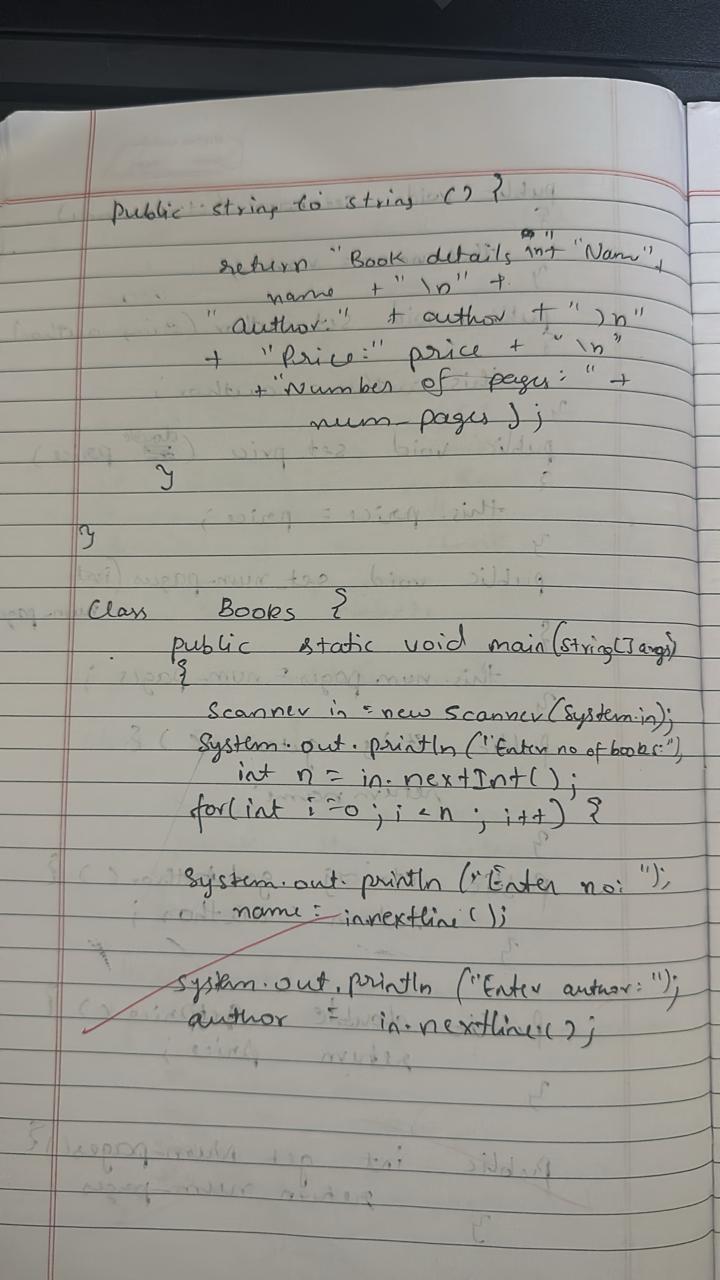 public string to string () {
return "Book details \n" + "Name" +
name + "\n" +
"author:" + author + "\n"
+ "Price:" price + "\n"
+ "Number of pages: " +
num_pages );
}
}
Class Books {
public static void main (String[] args)
{
Scanner in = new Scanner (System.in);
System.out.println ("Enter no of books:");
int n = in.nextInt();
for(int i=0; i<n; i++) {
System.out.println ("Enter no: ");
name = in.nextline();
System.out.println ("Enter author: ");
author = in.nextline();